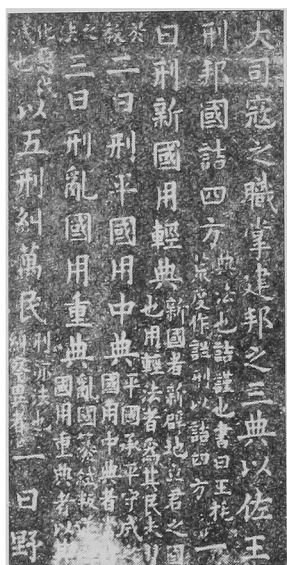 大司寇之職掌建邦之三典以佐王
刑邦國詰四方典法也詰謹也書曰王耗荒度作詳刑以詰四方一
曰刑新國用輕典新國者新辟地立君之國也用輕法者為其民未
二曰刑平國用中典平國承平守成之國用中典者
三曰刑亂國用重典亂國篡弒叛國用重典者以
以五刑糾萬民刑亦法也糾一曰野